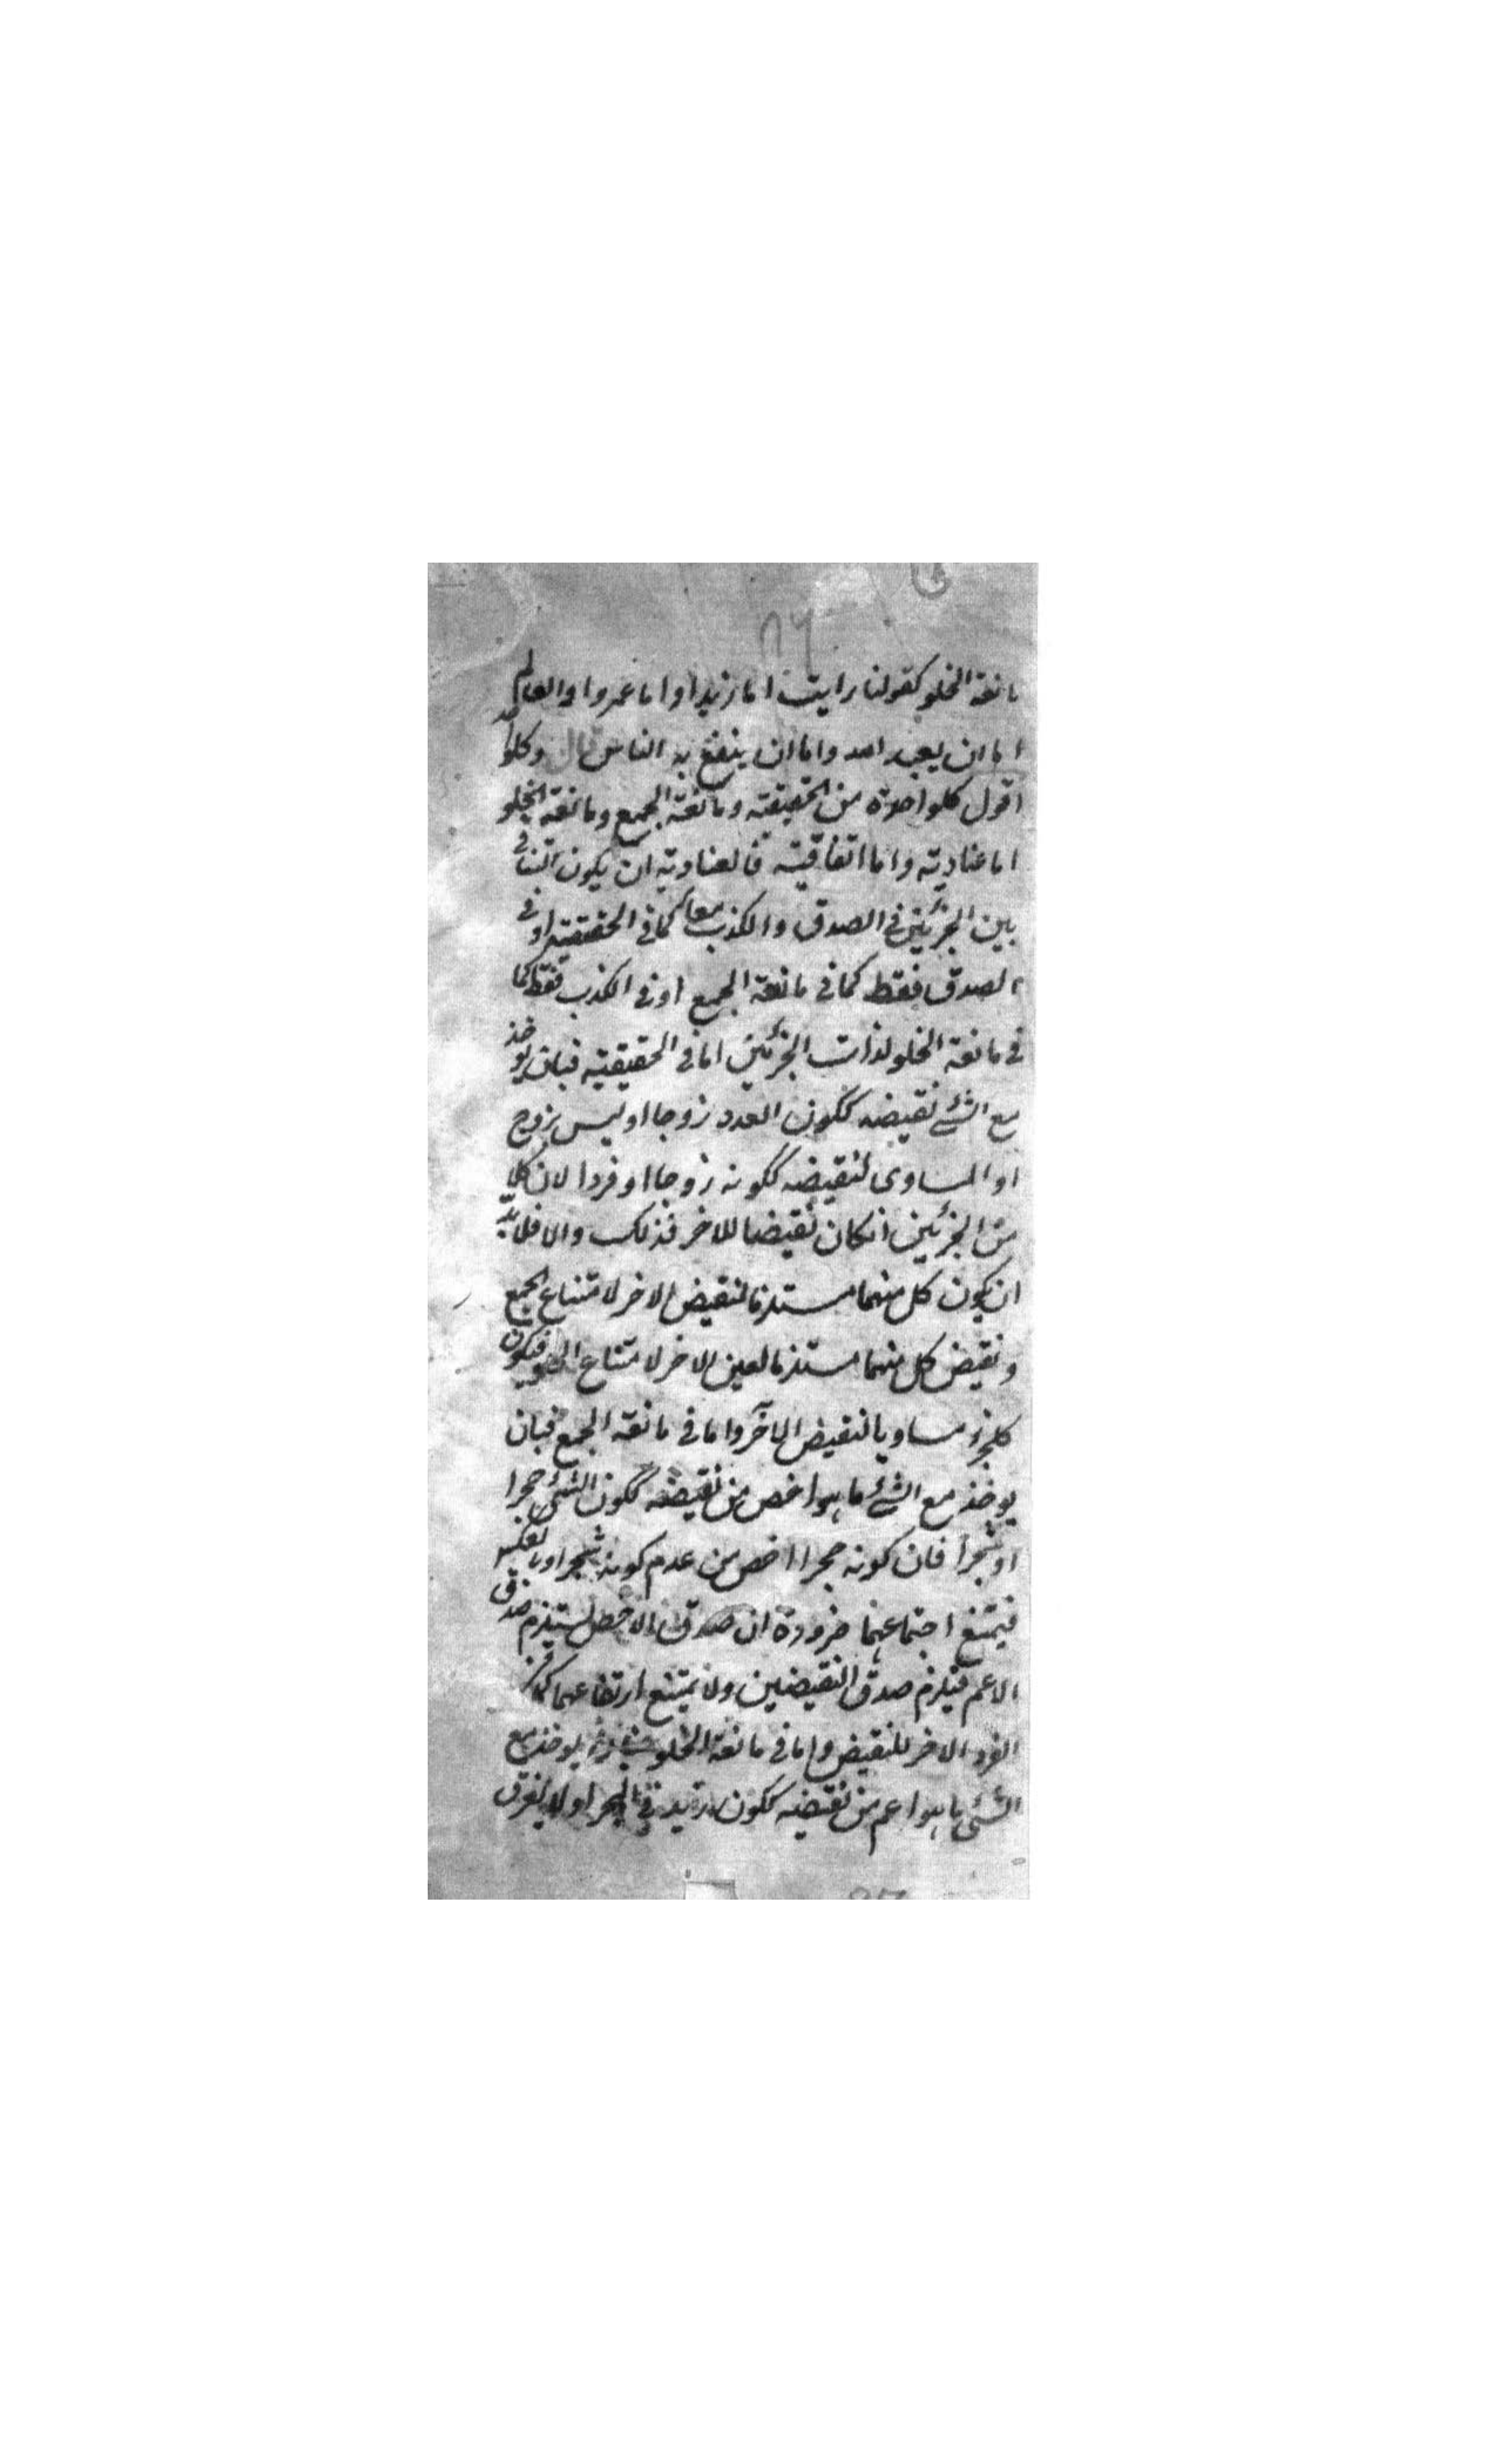 ٨٦
مانعة الخلو كقولنا رايت اما زيدا واما عمروا والعالم
اما ان يعبد الله واما ان ينفع به الناس قال وكلواحد
اقول كلواحدة من الحقيقية ومانعة الجمع ومانعة الخلو
اما عنادية واما اتفاقية فالعنادية ان يكون التنافي
بين الجزئين في الصدق والكذب معا كما في الحقيقية او في
الصدق فقط كما في مانعة الجمع او في الكذب فقط كما
في مانعة الخلو لذات الجزئين اما في الحقيقية فبان يوخذ
مع الشئ نقيضه ككون العدد زوجا او ليس بزوج
او المساوى لنقيضه ككونه زوجا او فردا لان كلا
من الجزئين انكان نقيضا للاخر فذلك والا فلا بد
ان يكون كل منهما مستلزما لنقيض الاخر لامتناع الجمع
ونقيض كل منهما مستلزما لعين الاخر لامتناع الخلو فيكون
كلجزء مساويا لنقيض الآخر واما في مانعة الجمع فبان
يوخذ مع الشئ ما هو اخص من نقيضه ككون الشئ حجرا
او شجرا فان كونه حجرا اخص من عدم كونه شجرا وبالعكس
فيمتنع اجتماعهما ضرورة ان صدق الاخص يستلزم صدق
الاعم فيلزم صدق النقيضين ولا يمتنع ارتفاعهما
الفرد الاخر للنقيض واما في مانعة الخلو يوخذ مع
الشئ ما هو اعم من نقيضه ككون زيد في البحر او لا يغرق